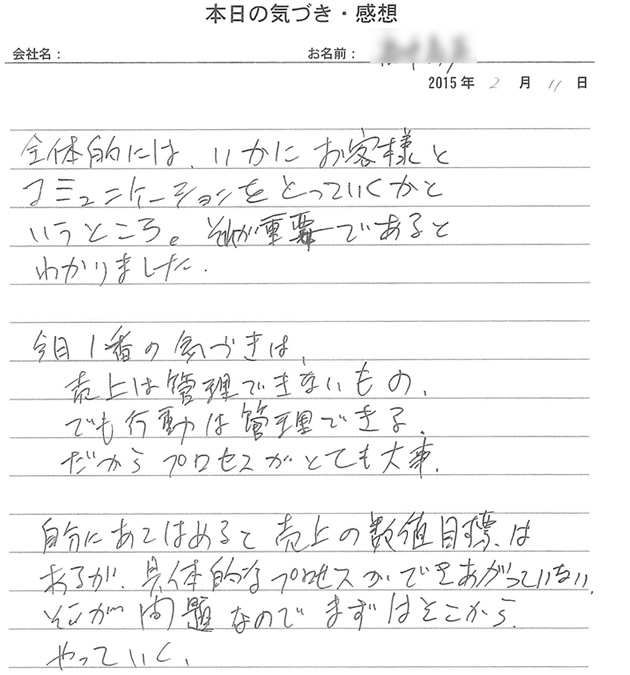 本日の気づき・感想
会社名：
お名前：
2015年 2 月 11 日
全体的には、いかにお客様と
コミュニケーションをとっていくかと
いうところ。それが重要であると
わかりました.
今日1番の気づきは、
売上は管理できないもの、
でも行動は管理できる.
だからプロセスがとても大事.
自分にあてはめると売上の数値目標は
あるが、具体的なプロセスができあがっていない、
そこが問題なのでまずはそこから
やっていく、